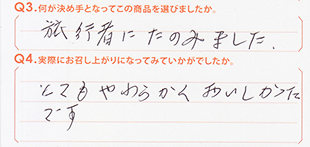 Q3.何が決め手となってこの商品を選びましたか。
旅行者にたのみました.
Q4.実際にお召し上がりになってみていかがでしたか。
とてもやわらかくおいしかった
です